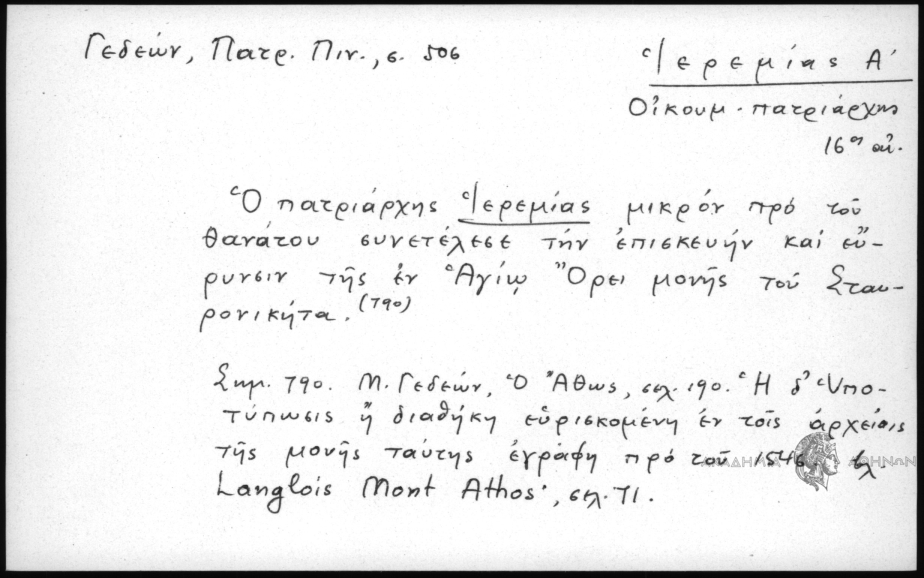 Γεδεών, Πατρ. Πιν., σ. 506
Ἱερεμίας Α΄
Οἰκουμ. πατριάρχης
16ος αἰ.
Ὁ πατριάρχης Ἱερεμίας μικρόν πρό τοῦ
θανάτου συνετέλεσε τήν ἐπισκευήν καί εὔ-
ρυνσιν τῆς ἐν Ἁγίῳ Ὄρει μονῆς τοῦ Σταυ-
ρονικήτα. (790)
Σημ. 790. Μ. Γεδεών, Ὁ Ἄθως, σελ. 190. Ἡ δ' Ὑπο-
τύπωσις ἤ διαθήκη εὑρισκομένη ἐν τοῖς ἀρχείοις
τῆς μονῆς ταύτης ἐγράφη πρό τοῦ 1546
Langlois Mont Athos, σελ. 71.
ΑΚΑΔΗΜΙΑ ΑΘΗΝΩΝ